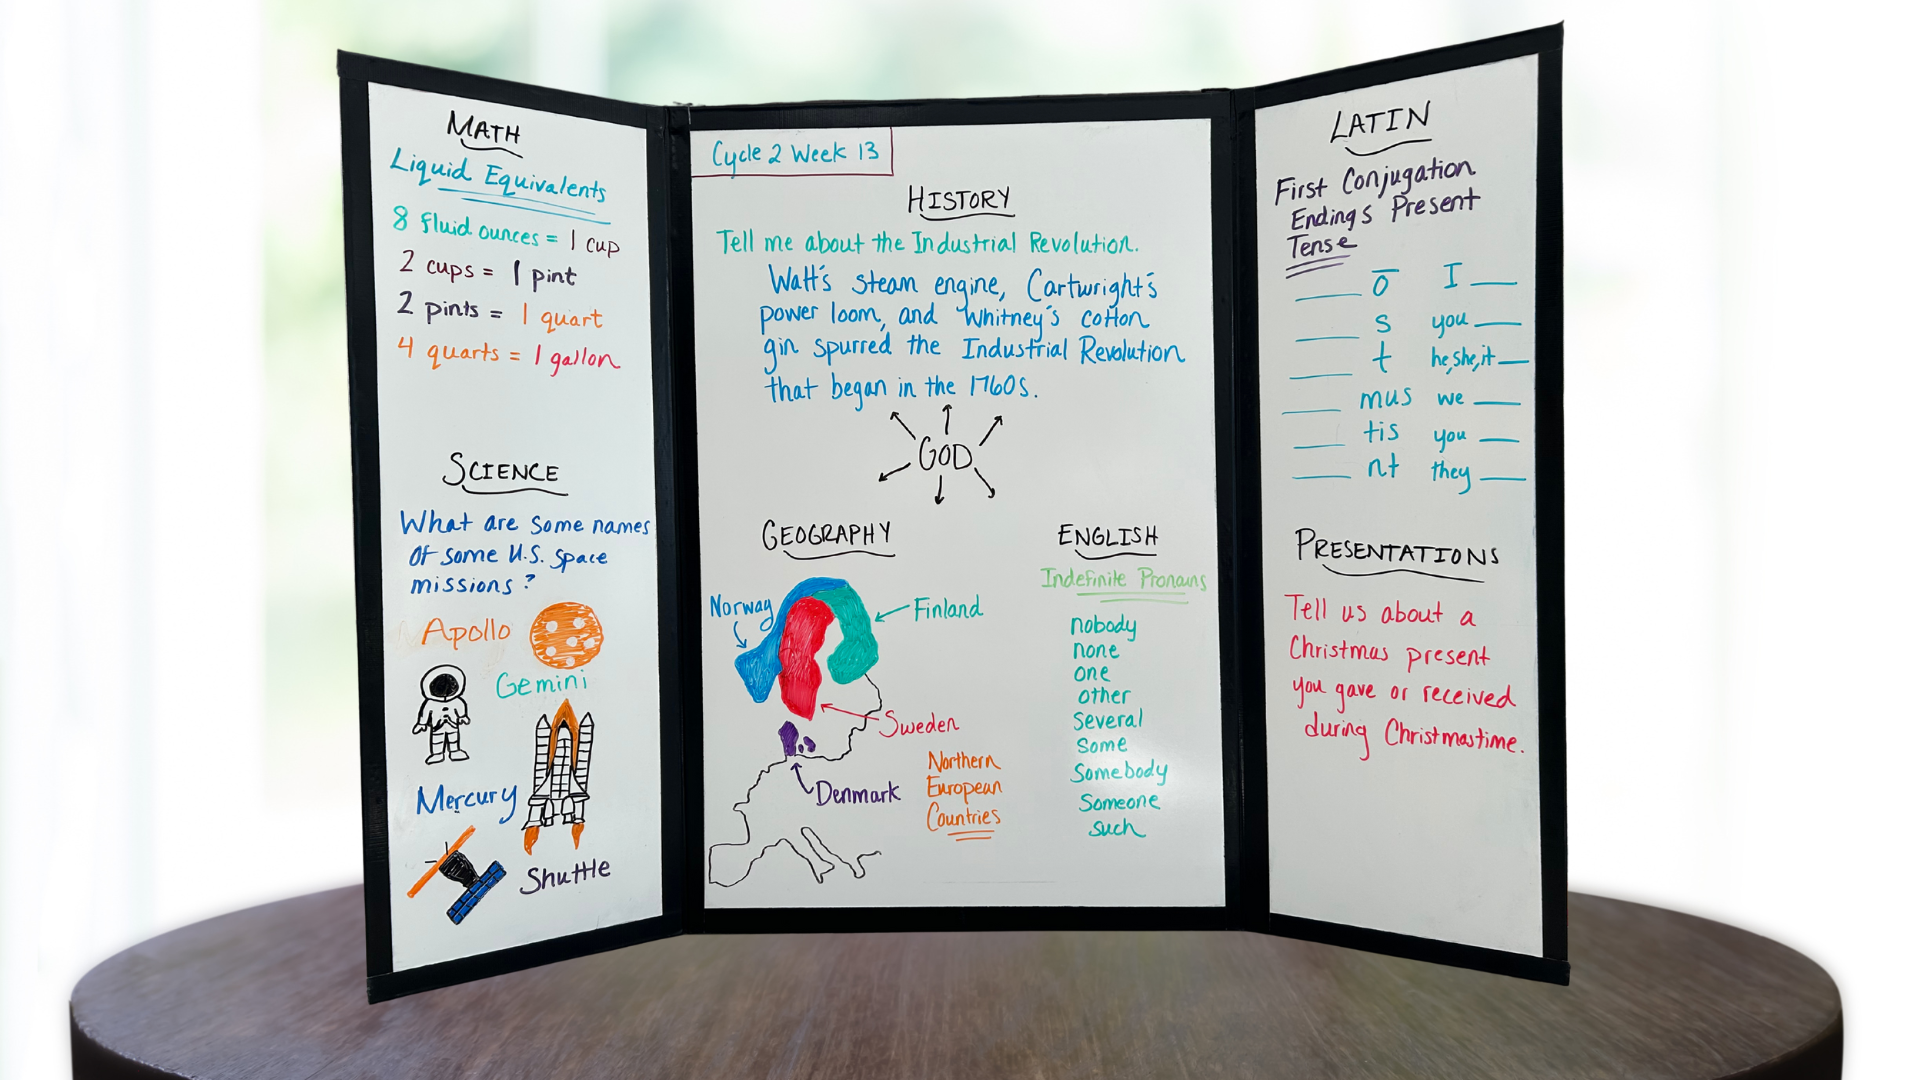 MATH
Liquid Equivalents
8 fluid ounces = 1 cup
2 cups = 1 pint
2 pints = 1 quart
4 quarts = 1 gallon
SCIENCE
What are some names
of some U.S. Space
missions?
Apollo
Gemini
Mercury
Shuttle
Cycle 2 Week 13
HISTORY
Tell me about the Industrial Revolution.
Watt's steam engine, Cartwright's
power loom, and Whitney's cotton
gin spurred the Industrial Revolution
that began in the 1760s.
GOD
GEOGRAPHY
Norway
Finland
Sweden
Denmark
Northern
European
Countries
ENGLISH
Indefinite Pronouns
nobody
none
one
other
several
some
somebody
someone
such
LATIN
First Conjugation
Endings Present
Tense
___ ō I ___
___ s you ___
___ t he, she, it ___
___ mus we ___
___ tis you ___
___ nt they ___
PRESENTATIONS
Tell us about a
Christmas present
you gave or received
during Christmastime.